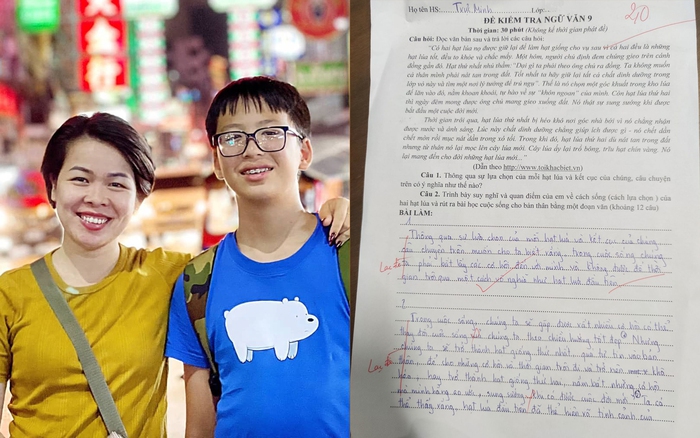 Họ tên HS: Trí Minh Lớp:
20
ĐỀ KIỂM TRA NGỮ VĂN 9
Thời gian: 30 phút (Không kể thời gian phát đề)
Câu hỏi: Đọc văn bản sau và trả lời các câu hỏi:
"Có hai hạt lúa nọ được giữ lại để làm hạt giống cho vụ sau vì cả hai đều là những
hạt lúa tốt, đều to khỏe và chắc mẩy. Một hôm, người chủ định đem chúng gieo trên cánh
đồng gần đó. Hạt thứ nhất nhủ thầm: "Dại gì ta phải theo ông chủ ra đồng. Ta không muốn
cả thân mình phải nát tan trong đất. Tốt nhất ta hãy giữ lại tất cả chất dinh dưỡng trong
lớp vỏ này và tìm một nơi lý tưởng để trú ngụ". Thế là nó chọn một góc khuất trong kho lúa
để lăn vào đó, nằm khoan khoái, tự hào về sự "khôn ngoan" của mình. Còn hạt lúa thứ hai
thì ngày đêm mong được ông chủ mang gieo xuống đất. Nó thật sự sung sướng khi được
bắt đầu một cuộc đời mới.
Thời gian trôi qua, hạt lúa thứ nhất bị héo khô nơi góc nhà bởi vì nó chẳng nhận
được nước và ánh sáng. Lúc này chất dinh dưỡng chẳng giúp ích được gì - nó chết dần
chết mòn rồi mục nát dần trong xó tối. Trong khi đó, hạt lúa thứ hai dù nát tan trong đất
nhưng từ thân nó lại mọc lên cây lúa mới. Cây lúa ấy lại trổ bông, trĩu hạt chín vàng. Nó
lại mang đến cho đời những hạt lúa mới..."
(Dẫn theo http://www.toikhacbiet.vn)
Câu 1. Thông qua sự lựa chọn của mỗi hạt lúa và kết cục của chúng, câu chuyện
trên có ý nghĩa như thế nào?
Câu 2. Trình bày suy nghĩ và quan điểm của em về cách sống (cách lựa chọn ) của
hai hạt lúa và rút ra bài học cuộc sống cho bản thân bằng một đoạn văn (khoảng 12 câu)
BÀI LÀM:
1.
Thông qua sự lựa chọn của mỗi hạt lúa và kết cục của chúng,
câu chuyện trên muốn cho ta biết rằng, trong cuộc sống chúng
Lạc đề ta phải bắt lấy các cơ hội đến với mình và không được để thời
gian trôi qua một cách vô nghĩa như hạt lúa đầu tiên.
2.
Trong cuộc sống, chúng ta sẽ gặp được rất nhiều cơ hội có thể
thay đổi cuộc sống chúng ta theo chiều hướng tốt đẹp. Nhưng
Lạc đề chúng ta sẽ trở thành hạt giống thứ nhất, quá tự tin vào bản
thân, để cho những cơ hội và thời gian trôi đi và trở nên khô
héo, hay trở thành hạt giống thứ hai, nắm bắt những cơ hội
mà mình hằng ao ước, sung sướng khi có được cuộc đời mới. Ta có
thể thấy rằng, hạt lúa đầu tiên đã thể hiện rõ tính cách của